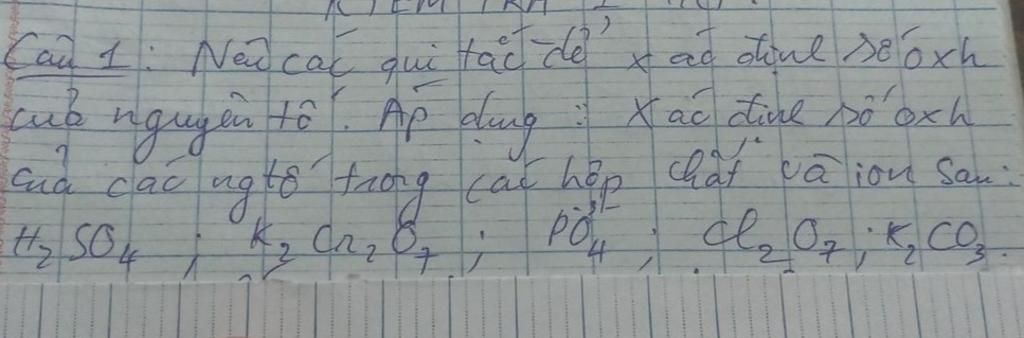 Câu 1: Nêu các qui tắc để xác định số oxh
của nguyên tố. Áp dụng: Xác định số oxh
của các ngtố trong các hợp chất và ion sau:
H₂SO₄; K₂Cr₂O₇; PO₄³⁻; Cl₂O₇; K₂CO₃.